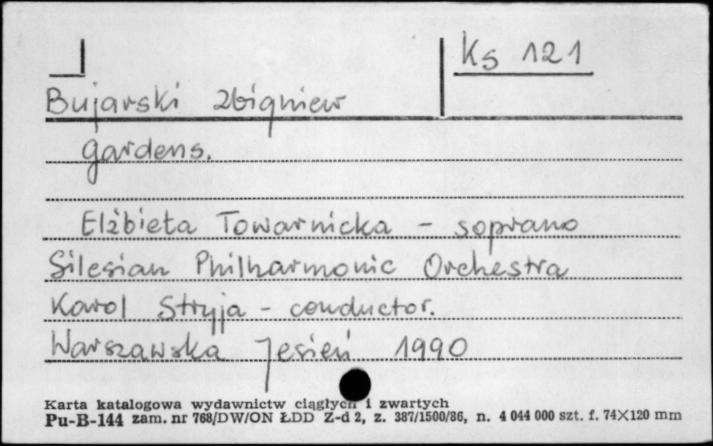 Ks 121
Bujarski Zbigniew
Gardens.
Elżbieta Towarnicka - soprano
Silesian Philharmonic Orchestra
Karol Stryja - conductor.
Warszawska Jesień 1990
Karta katalogowa wydawnictw ciągłych i zwartych
Pu-B-144 zam. nr 768/DW/ON ŁDD Z-d 2, z. 387/1500/86, n. 4 044 000 szt. f. 74X120 mm